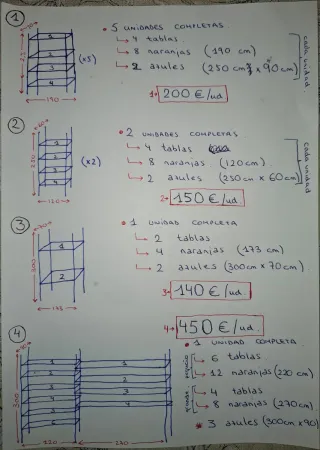 1
• 5 UNIDADES COMPLETAS
4 tablas
8 naranjas (190 cm)
2 azules (250 cm x 90 cm)
cada unidad
(x5)
1 2 3 4
190
1• 200 €/ud.
2
• 2 UNIDADES COMPLETAS
4 tablas
8 naranjas (120cm)
2 azules (250cm x 60cm)
cada unidad
(x2)
120
2• 150 €/ud.
3
• 1 UNIDAD COMPLETA
2 tablas
4 naranjas (173 cm)
2 azules (300cm x 70cm)
1
2
300
173
3• 140 €/ud.
4
4• 450 €/ud.
• 1 UNIDAD COMPLETA
6 tablas
12 naranjas (220 cm)
4 tablas
8 naranjas (270cm)
* 3 azules (300cm x 90)
1
2
3
4
300
220
270